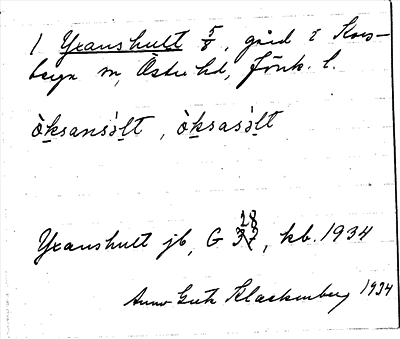 1 Yxanshult 5/8, gård i Kors-
berga sn, Östra hd, Jönk. l.
òksansə̀lt, òksasə̀lt
28
Yxanshult jb, G 37, kb. 1934
Anna Greta Klackenberg 1934